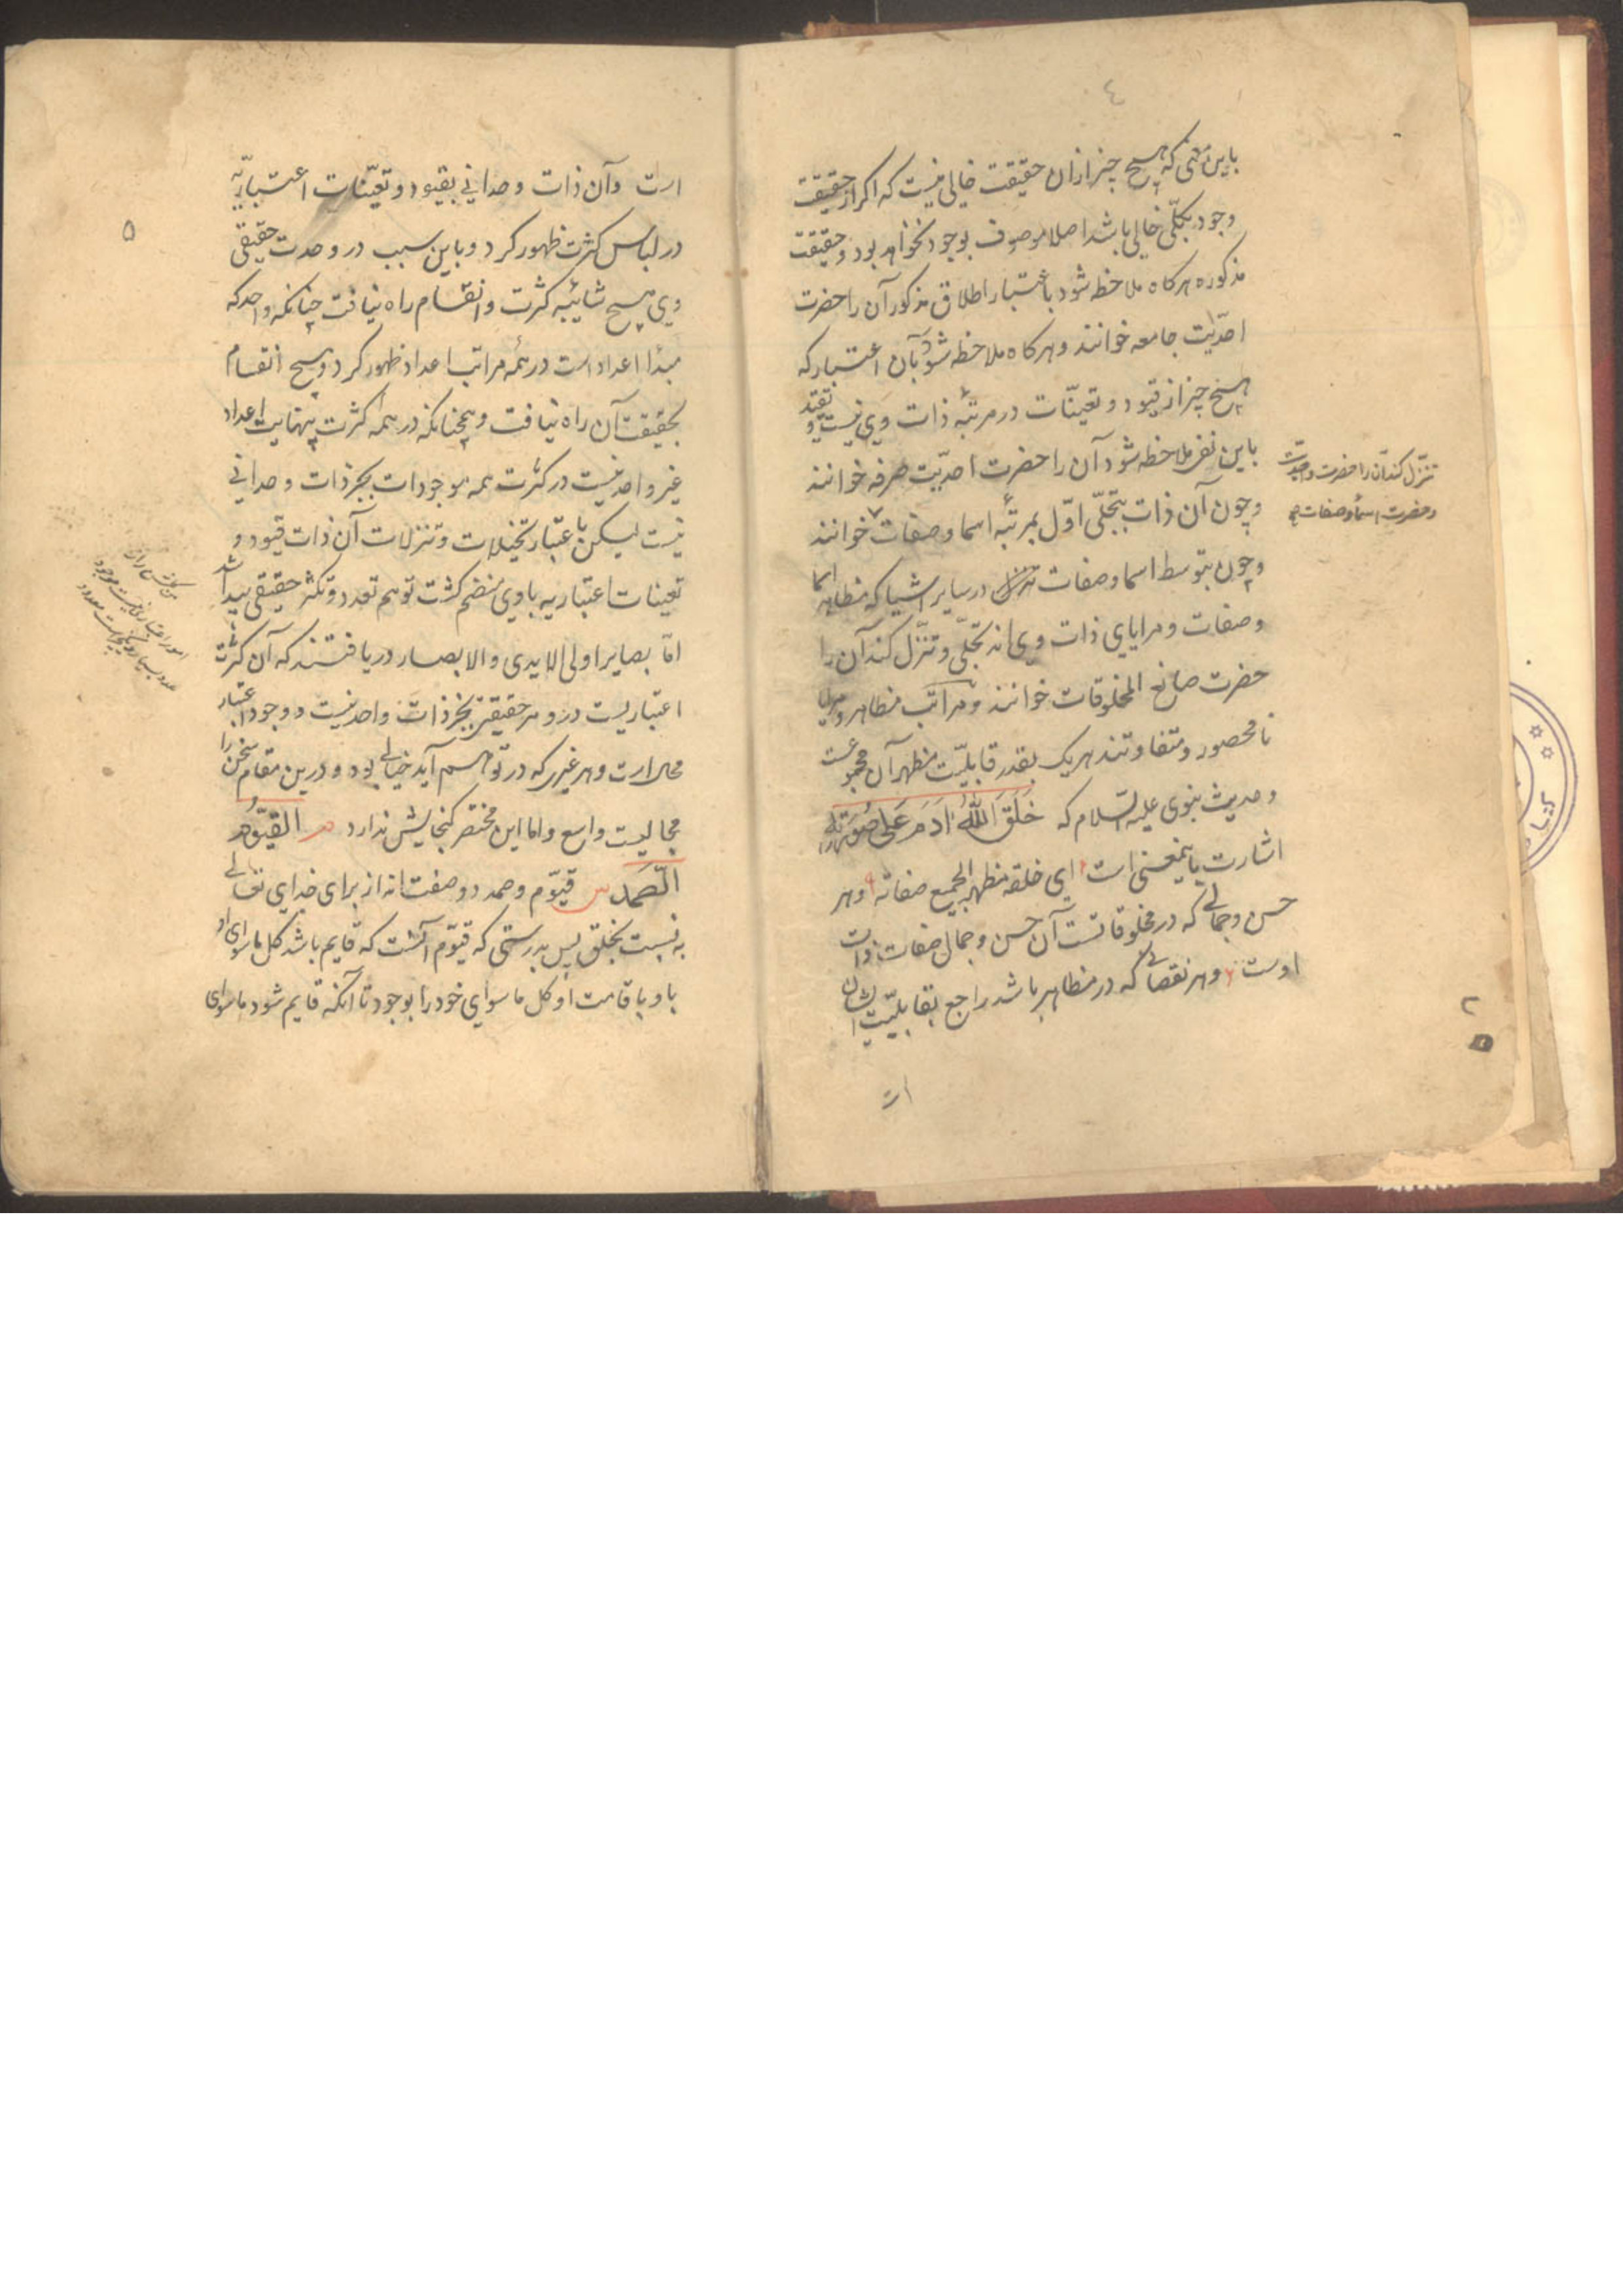 ٤
باین معنی که هیچ چیز ازان حقیقت خالی نیست که اکر از حقیقت
وجود بکلّی خالی باشد اصلا موصوف بوجود نخواهد بود و حقیقت
مذکوره هرکاه ملاحظه شود باعتبار اطلاق مذکور آن را حضرت
احدّیت جامعه خوانند و هرکاه ملاحظه شود بآن اعتبار که
هیچ چیز از قیود و تعینّات در مرتبهٔ ذات وی نیست و تقیّد
باین نفی ملاحظه شود آن را حضرت احدیّت صرفه خوانند
و چون آن ذات بتجلّی اوّل بمرتبهٔ اسما و صفات خوانند
تنزّل کند آن را حضرت واحدیّت
و حضرت اسما و صفات
و چون بتوسط اسما و صفات در سایر اشیا که مظاهر اسما
و صفات و مرایای ذات وی اند تجلّی و تنزّل کند آن را
حضرت صانع المخلوقات خوانند و مراتب مظاهر و مرایا
نامحصور و متفاوتند هریک بقدر قابلیّت مظهر آن مجموعست
و حدیث نبوی علیه السلام که خَلَقَ اللّٰهُ اٰدَمَ عَلیٰ صُورَتِهِ
اشارت باینمعنی است ای خلقه مظهر الجمیع صفاته و هر
حسن و جمالی که در مخلوقاتست آن حسن و جمال صفات ذات
اوست و هر نقصانی که در مظاهر باشد راجع بقابلیّت ایشان
ات
٢
۵
ات وآن ذات وحدانی بقیود و تعیّنات اعتباریّه
در لباس کثرت ظهور کرد و باین سبب در وحدت حقیقی
وی هیچ شائبه کثرت و انقسام راه نیافت چنانکه واحد که
مبدأ اعداد است در همه مراتب اعداد ظهور کرد و هیچ انقسام
بحقیقت آن راه نیافت و همچنانکه در همه کثرت بینهایت اعداد
غیر واحد نیست در کثرت همه موجودات بجز ذات وحدانی
نیست لیکن باعتبار تخیلات و تنزلات آن ذات قیود و
تعینات اعتباریه باوی منضم کشت توهم تعدد و تکثر حقیقی پیدا شد
امّا بصایر اولی الایدی والابصار دریافتند که آن کثرت
اعتباریست در هر حقیقتی بجز ذات واحد نیست و وجود اغیار
محالرات و هر غیری که در توهم آید خیالی بود و درین مقام سخن را
مجالیست واسع و اما این مختصر کنجایش ندارد القیّوم
الصّمد قیّوم و صمد دو صفت اند از برای خدای تعالی
به نسبت بخلق پس بدرستی که قیوّم آنست که قایم باشد کل ماسوای او
باو باقامت او کل ماسوای خود را بوجود تا آنکه قایم شود ماسوای